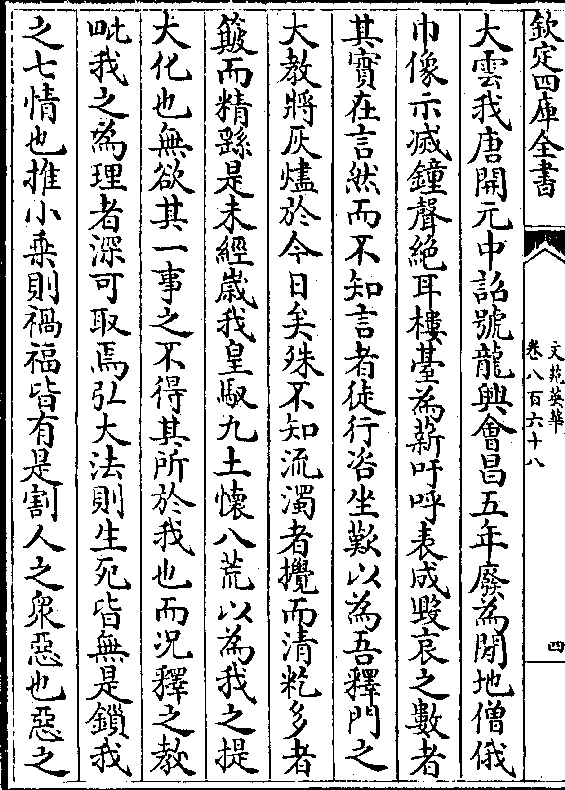 欽定四庫全書
文苑英華
卷八百六十八
四
大雲我唐開元中詔號龍興會昌五年廢為閒地僧俄
巾像示滅鐘聲絶耳樓臺為薪吁呼表成毀哀之數者
其實在言然而不知言者徒行咨坐歎以為吾釋門之
大教將灰燼於今日矣殊不知流濁者攪而清粃多者
簸而精繇是未經歳我皇馭九土懷八荒以為我之提
大化也無欲其一事之不得其所於我也而況釋之教
毗我之為理者深可取焉弘大法則生死皆無是鎖我
之七情也推小乗則禍福皆有是割人之衆惡也惡之